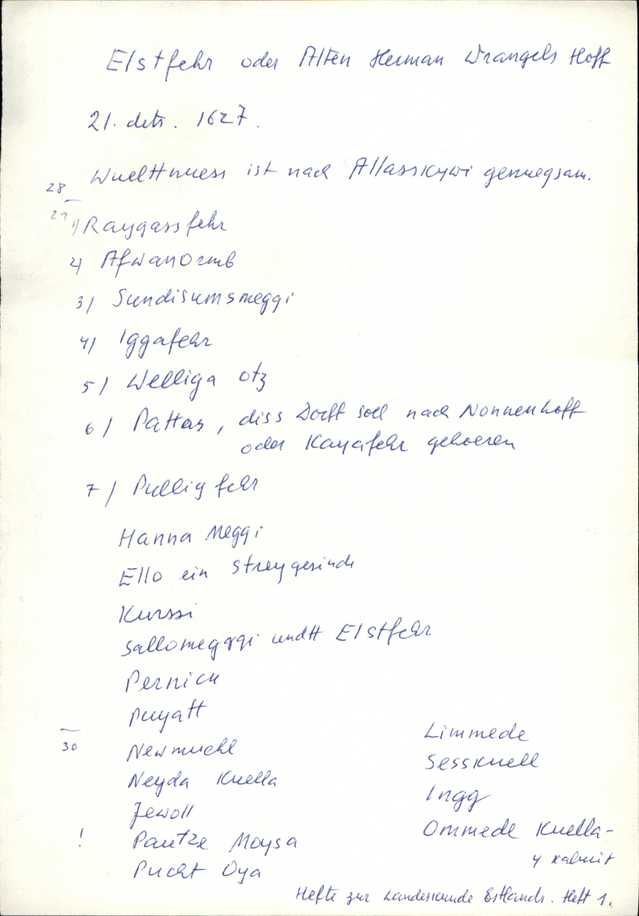 Elstfehr oder Alten Herman Wrangels Hoff
21. dets. 1627.
28
Wuelttmuess ist nach Allasskywi genuegsam.
29
1) Raygassfehr
2) Afwanormb
3) Sundisumsmeggi
4) Iggafehr
5) Welliga otz
6) Pattas, diss Dorff soll nach Nonnenhoff
oder Kayafehr gehoeren
7) Pullig fehr
Hanna Meggi
Ello ein Streygesinde
Kurssi
Sallomeggi undtt Elstfehr
Pernick
Puyatt
30
Newmuehl
Neyda Kuella
Jewoll
! Pautze Moysa
Pucht Oya
Limmede
Sesskuell
Ingg
Ommede Kuella-
4 kalmit
Hefte zur Landeskunde Estlands. Heft 1.